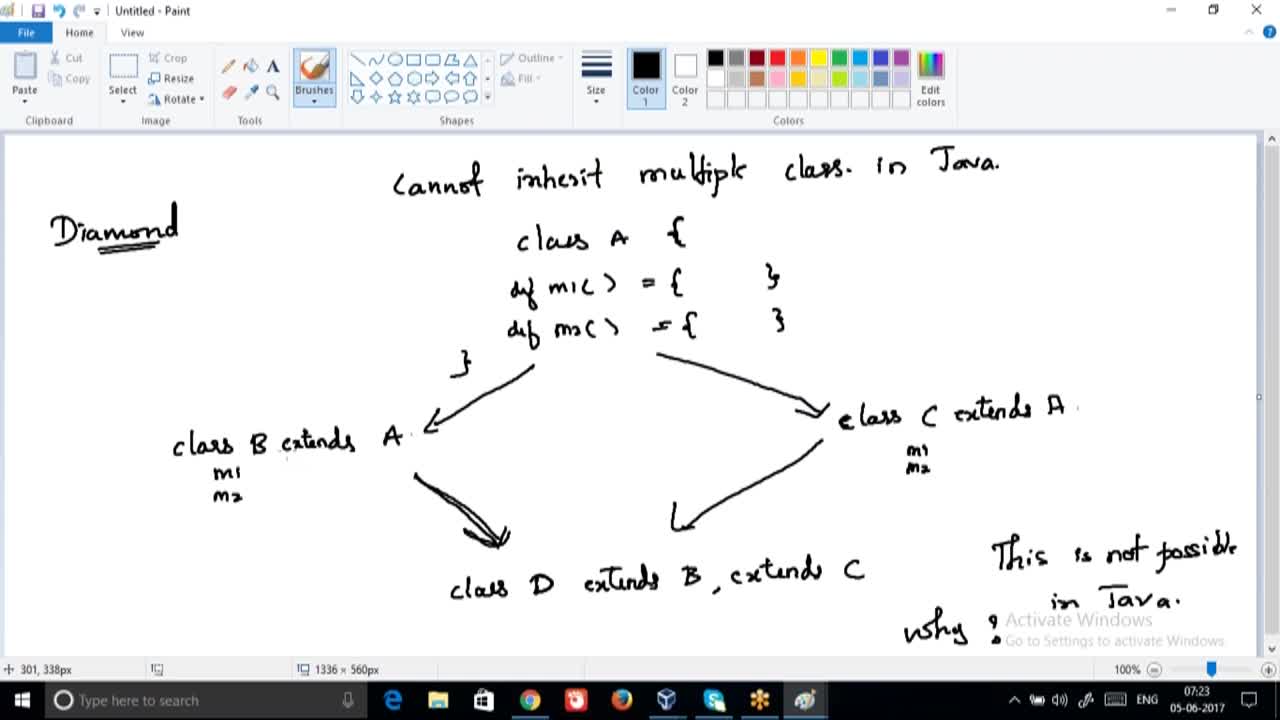 Untitled - Paint
File Home View
Paste
Cut
Copy
Clipboard
Select
Crop
Resize
Rotate
Image
A
Tools
Brushes
Shapes
Outline
Fill
Size
Color 1
Color 2
Edit colors
Colors
Cannot inherit multiple class. in Java.
Diamond
class A {
def m1( ) = { }
def m2( ) = { }
}
class B extends A.
m1
m2
class C extends A.
m1
m2
class D extends B, extends C
This is not possible
in Java.
why ?
Activate Windows
Go to Settings to activate Windows.
301, 338px
1336 × 560px
100%
Type here to search
ENG
07:23
05-06-2017